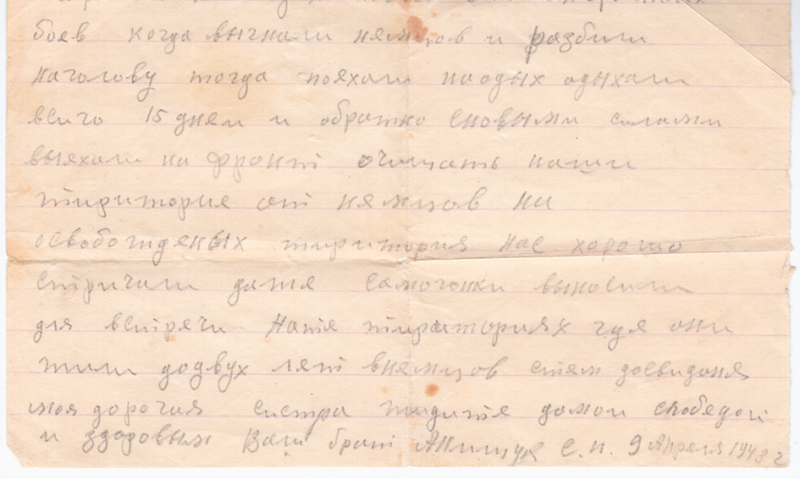 боев когда выгнали нямцов и разбили
наголову тогда поехали наодых одыхали
всиго 15 дней и обратно сновыми силами
выехали на фронт очищать наши
тириторие от нямцов на
освобожденых тириториях нас хорошо
стричали даже самогонки выносили
для встречи Натех тириториях гдя они
жили додвух лят внямцов стем досвиданя
моя дорогая систра ждите домой спобедой
и здоровым Ваш брат С. П. 9 Апреля 1943 г